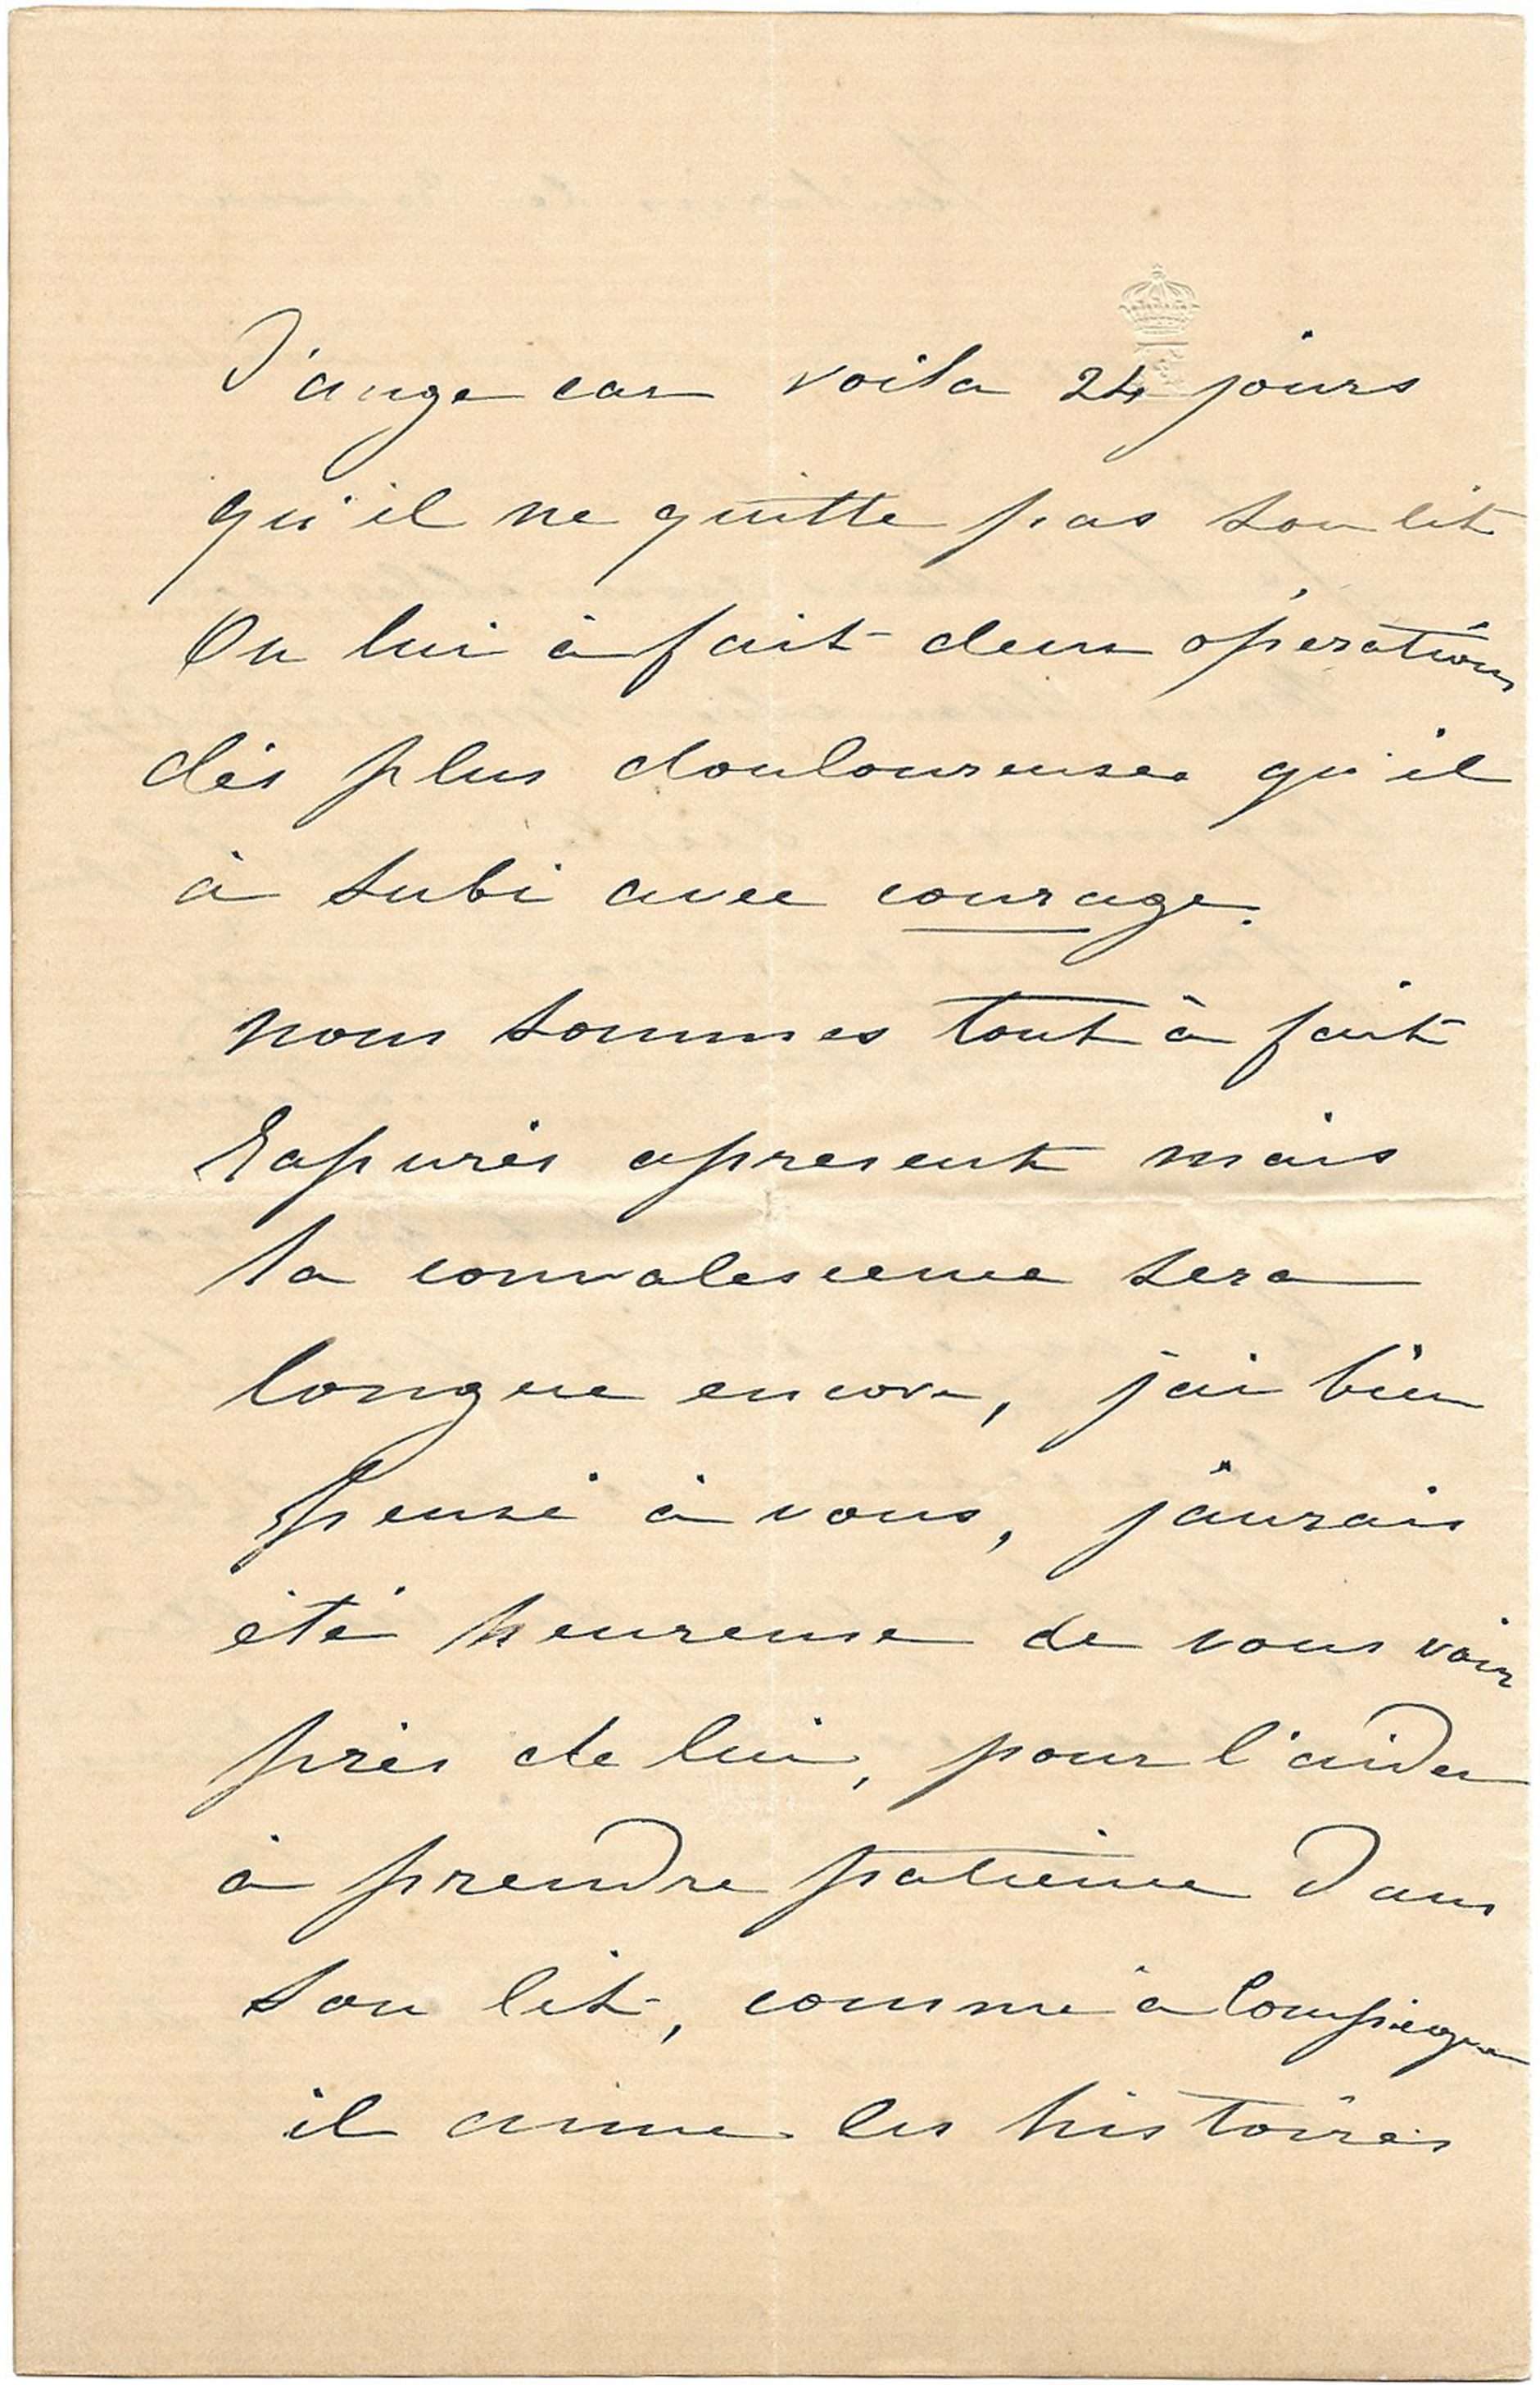 d'ange car voila 24 jours
qu'il ne quitte pas son lit
On lui à fait deux óperations
dés plus douloureuses qu'il
à subi avec courage.
nous sommes tout à fait
apresent mais
la convalescence sera
longue encore, j'ai bien
pensé à vous, j'aurais
été heureuse de vous voir
près de lui, pour l'aider
à prendre patience dans
son lit, comme à Compiegne
il aime les histoires